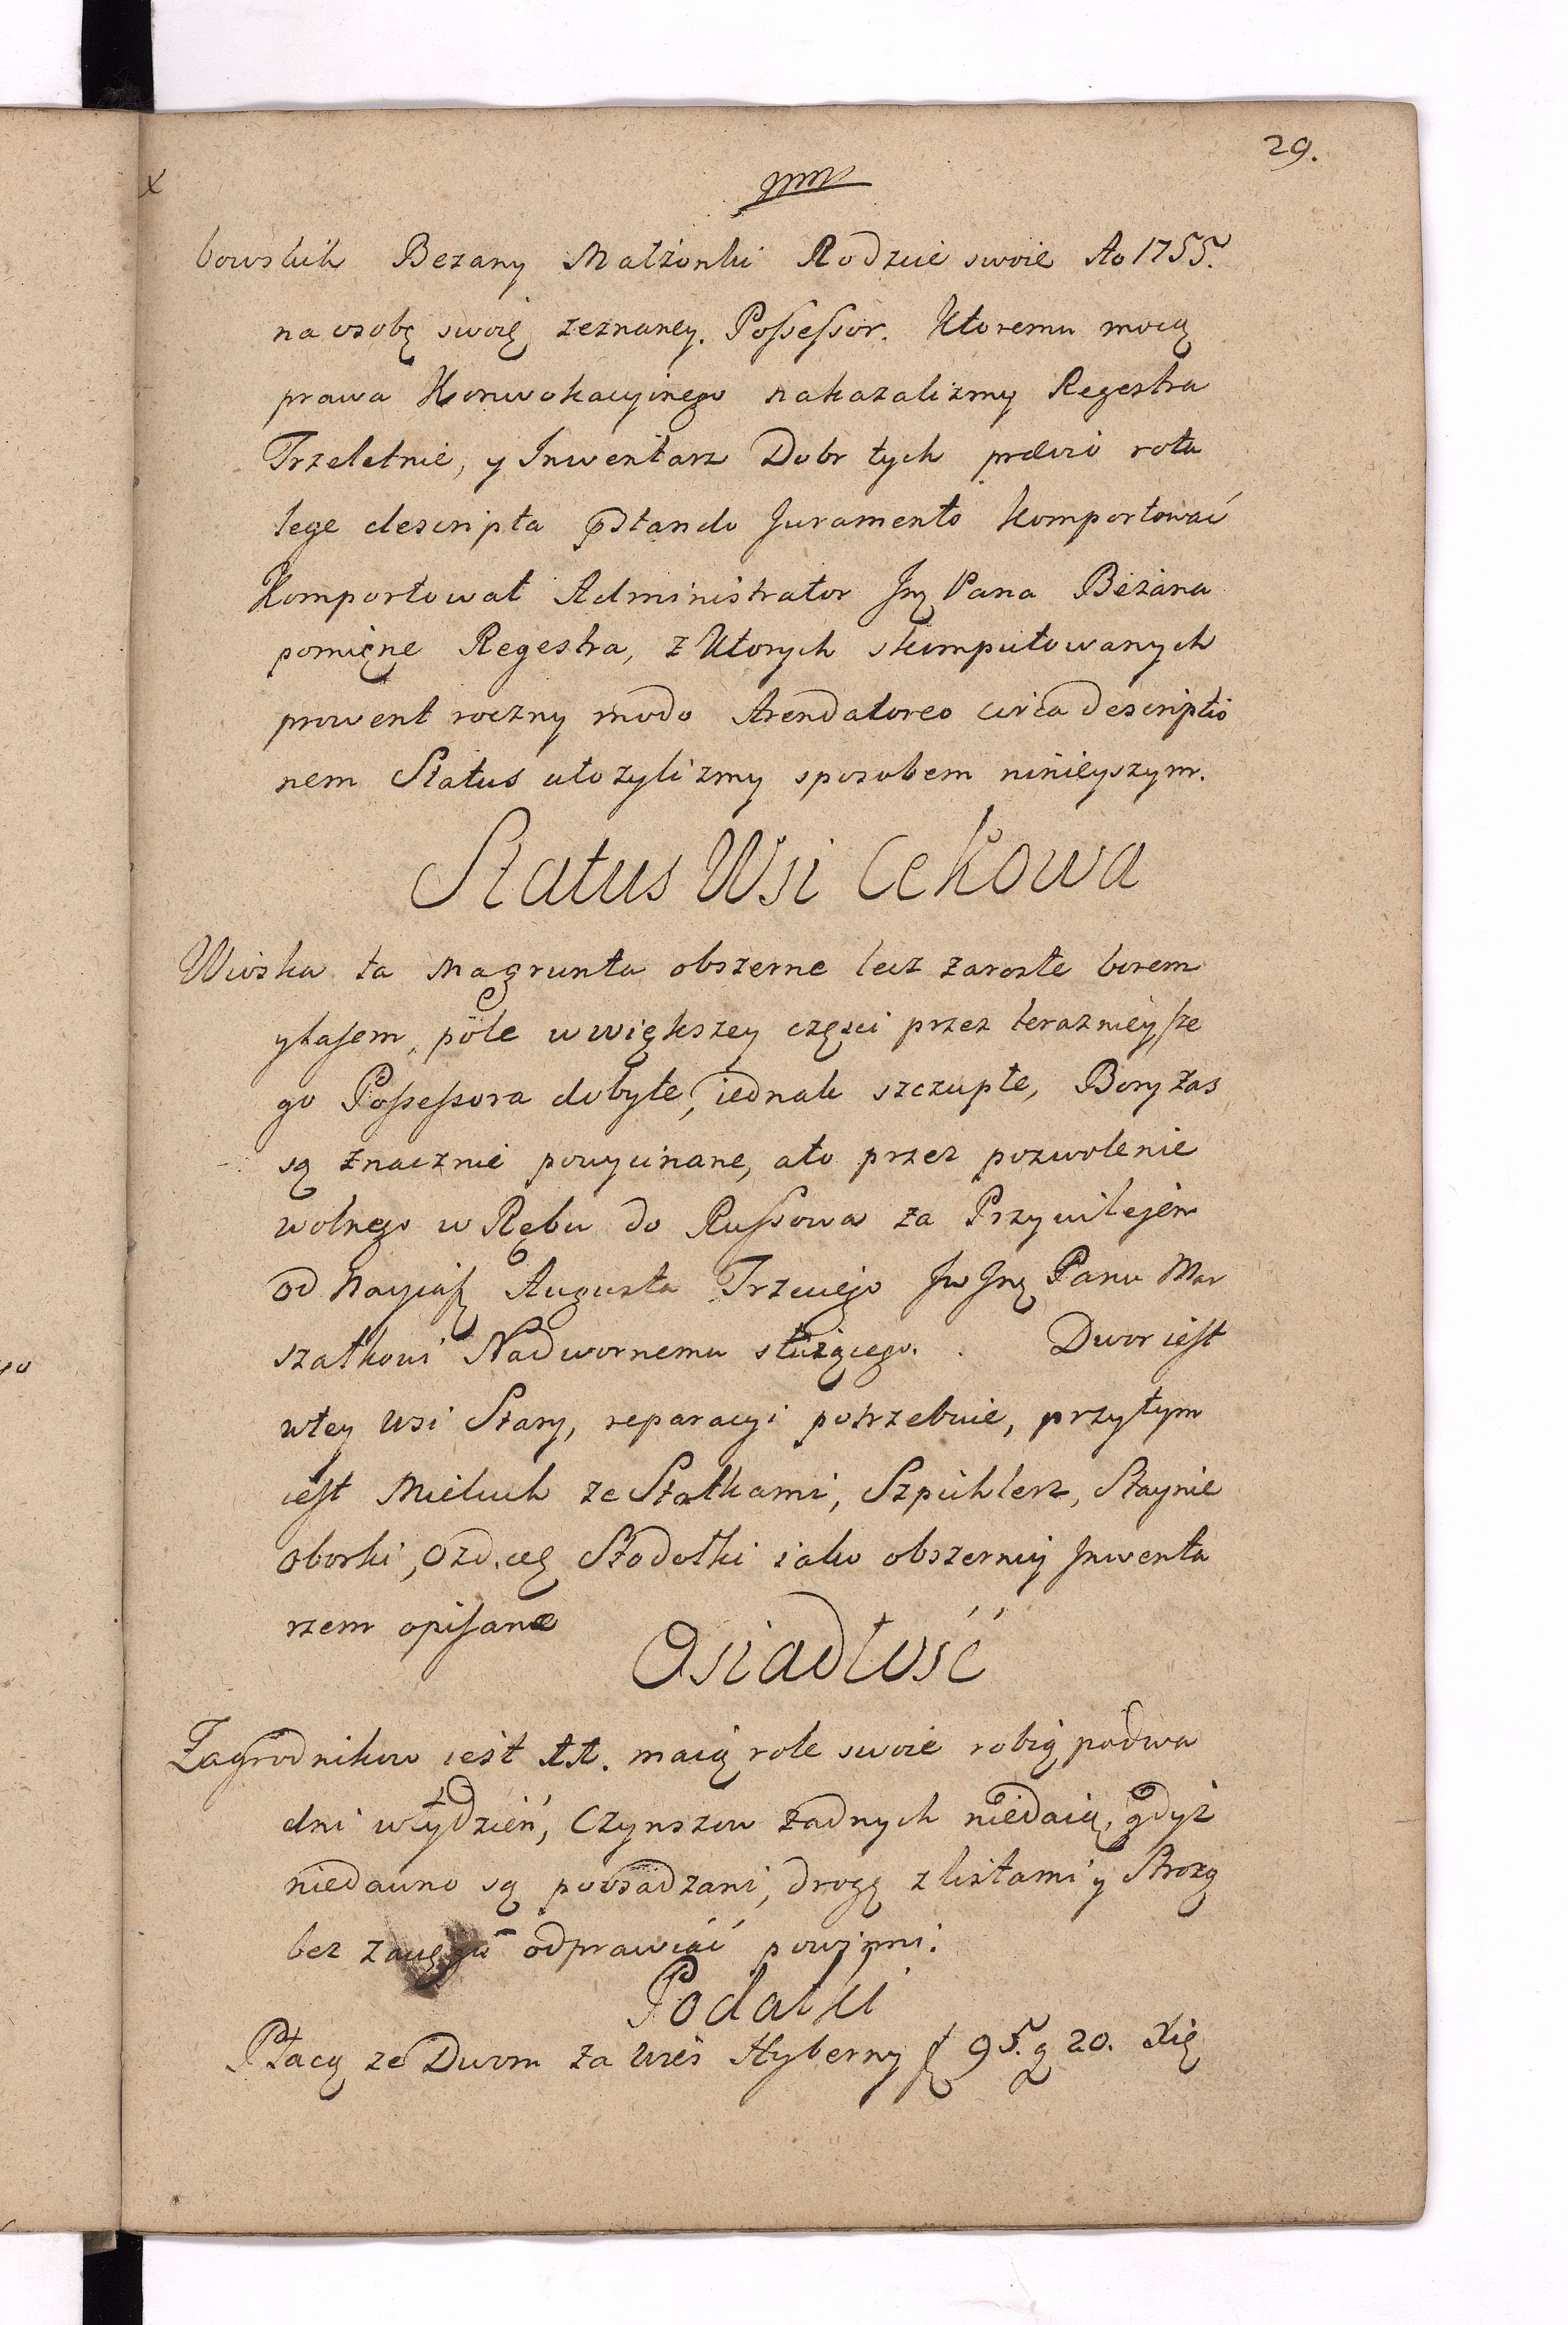 29.
bowskich Bezany Małżonki Rodzie swoie Ao 1755.
na osobę swoię zeznaney. Possessor. Ktoremu mocą
prawa Konwokacyinego nakazalizmy Regestra
Trzeletnie, y Inwentarz Dobr tych prævio rota
lege descripta pstando Juramento komportować
Komportował Administrator Jmę Pana Bezana
pomięne Regestra, z Ktorych skomputowanych
prowent roczny modo Arendatoreo circa descriptio
nem Status ułozylizmy sposobem ninieyszym.
Status Wsi Cekowa
Wioska ta ma grunta obszerne lecz zarosłe borem
y lasem, pole w większey części przez teraznieysze
go Possessora dobyte, iednak szczupłe, Bory zas
są znacznie powycinane, a to przez pozwolenie
wolnego w Rębu do Russowa za Przywilejem
od Nayiaś Augusta Trzeciego Jw Jmę Panu Mar
szałkowi Nadwornemu służącego. Dwor iest
w tey Wsi Stary, reparacyi potrzebuie, przytym
iest Mielcuch ze Statkami, Szpichlerz, Staynie
oborki, Stodołki iako obszerniy Inwenta
rzem opisane
Osiadłość
Zagrodnikow iest 11. maią role swoie robią po dwa
dni w tydzień, Czynszow żadnych niedaią, gdyż
niedawno są poosadzani, drogę z listami y Strożą
bez zaciągu odprawiać powinni.
Podatki
Płacą ze Dworu za Wieś Hyberny f 95. g 20. Xię